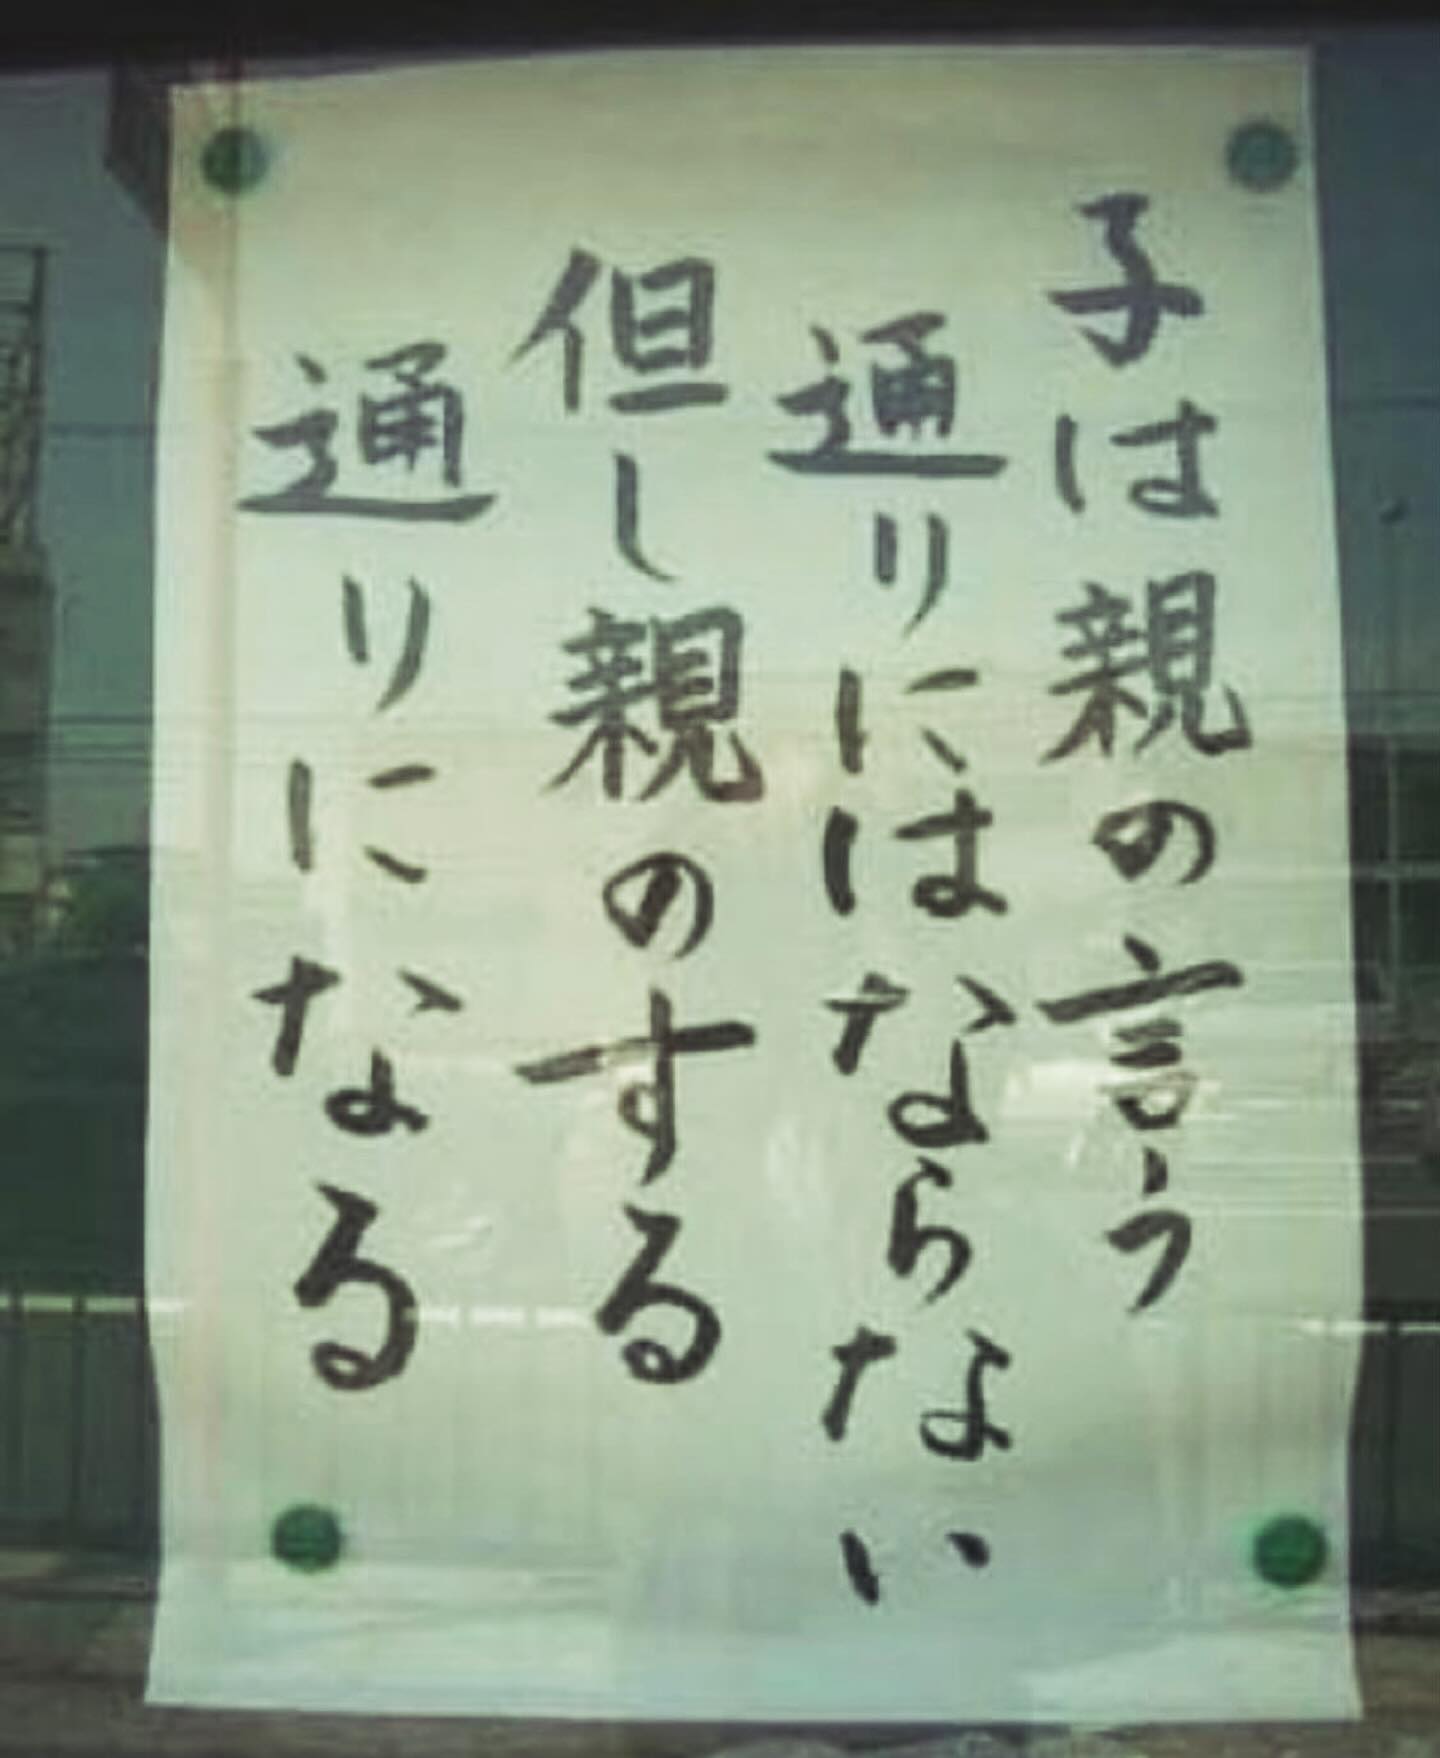 子は親の言う
通りにはならない
但し親のする
通りになる